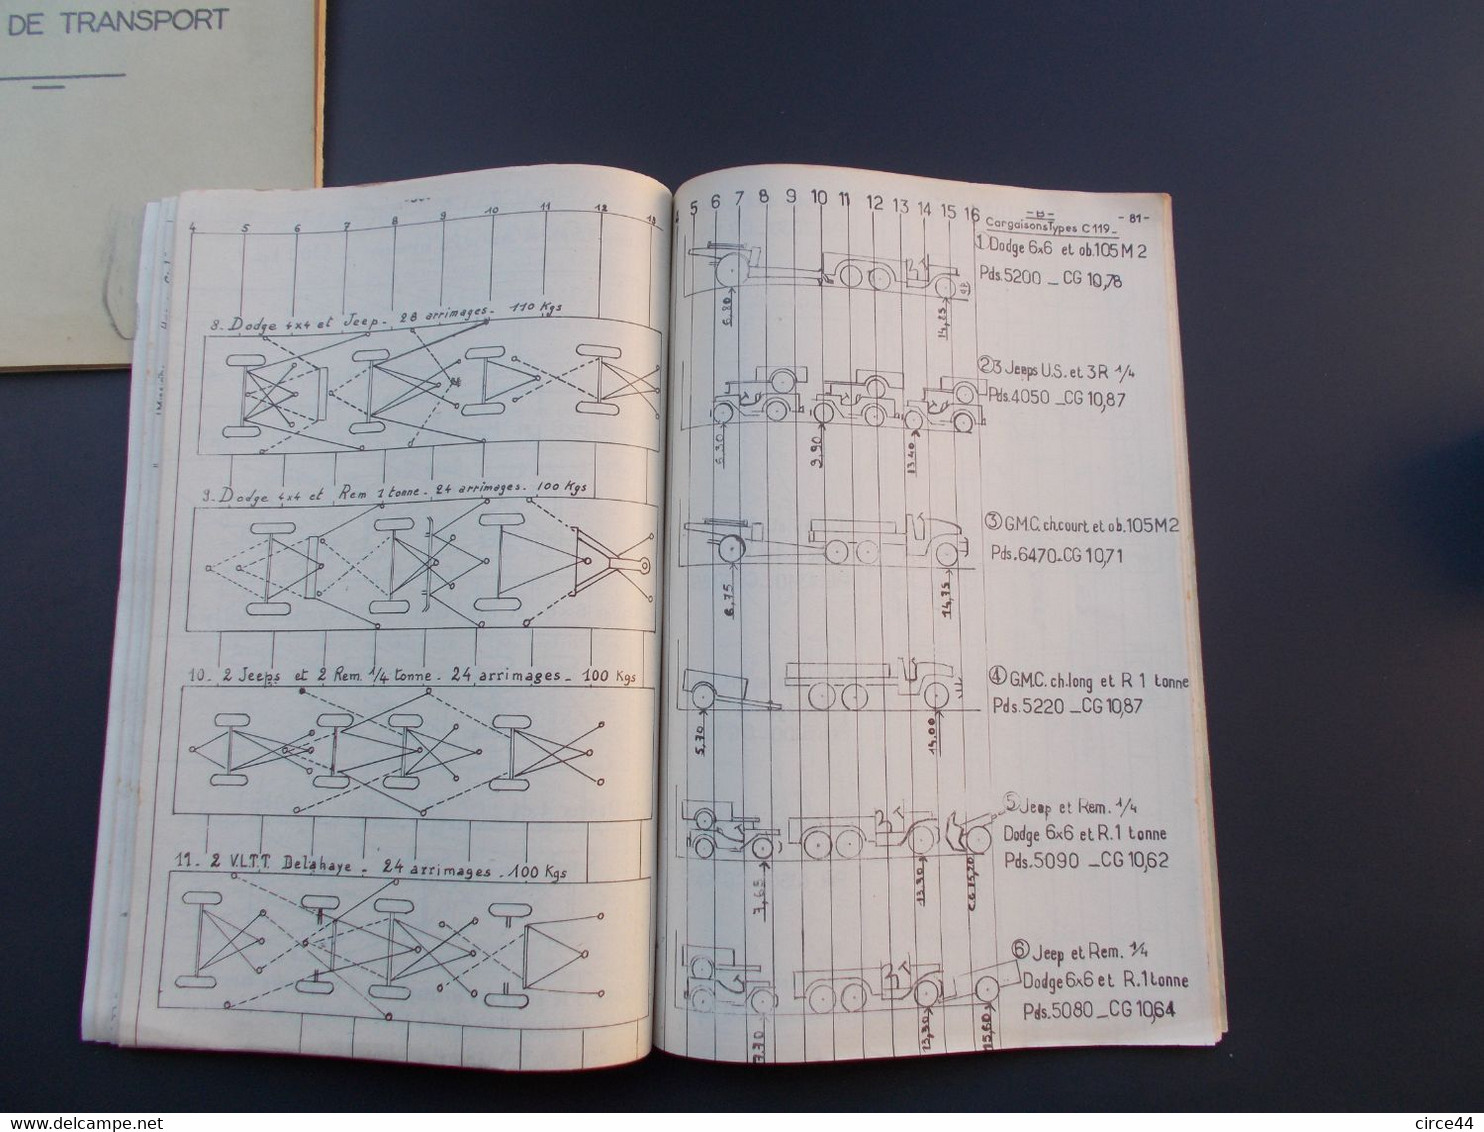 DE TRANSPORT
4 5 6 7 8 9 10 11 12 13
8_ Dodge 4x4 et Jeep_ 28 arrimages_ 110 Kgs
9_ Dodge 4x4 et Rem 1 tonne_ 24 arrimages_ 100 Kgs
10_ 2 Jeeps et 2 Rem. 1/4 tonne_ 24 arrimages_ 100 Kgs
11_ 2 V.L.T.T. Delahaye _ 24 arrimages _ 100 Kgs
5 6 7 8 9 10 11 12 13 14 15 16
- 81 -
Cargaisons Types C 119_
① Dodge 6x6 et ob.105 M 2
Pds.5200 _ CG 10,78
14,25
② 3 Jeeps U.S. et 3 R 1/4
Pds.4050 _ CG 10,87
6.30
9,90
13.40
③ G.M.C. ch.court et ob.105 M2
Pds.6470_CG 10,71
6,75
14,75
④ G.M.C. ch.long et R 1 tonne
Pds.5220 _CG 10,87
5,70
14.00
⑤ Jeep et Rem. 1/4
Dodge 6x6 et R.1 tonne
Pds.5090 _CG 10,62
7,65
13.30
⑥ Jeep et Rem. 1/4
Dodge 6x6 et R.1 tonne
Pds.5080 _CG 10,64
7.70
13,30
15,60
www.delcampe.net
circe44